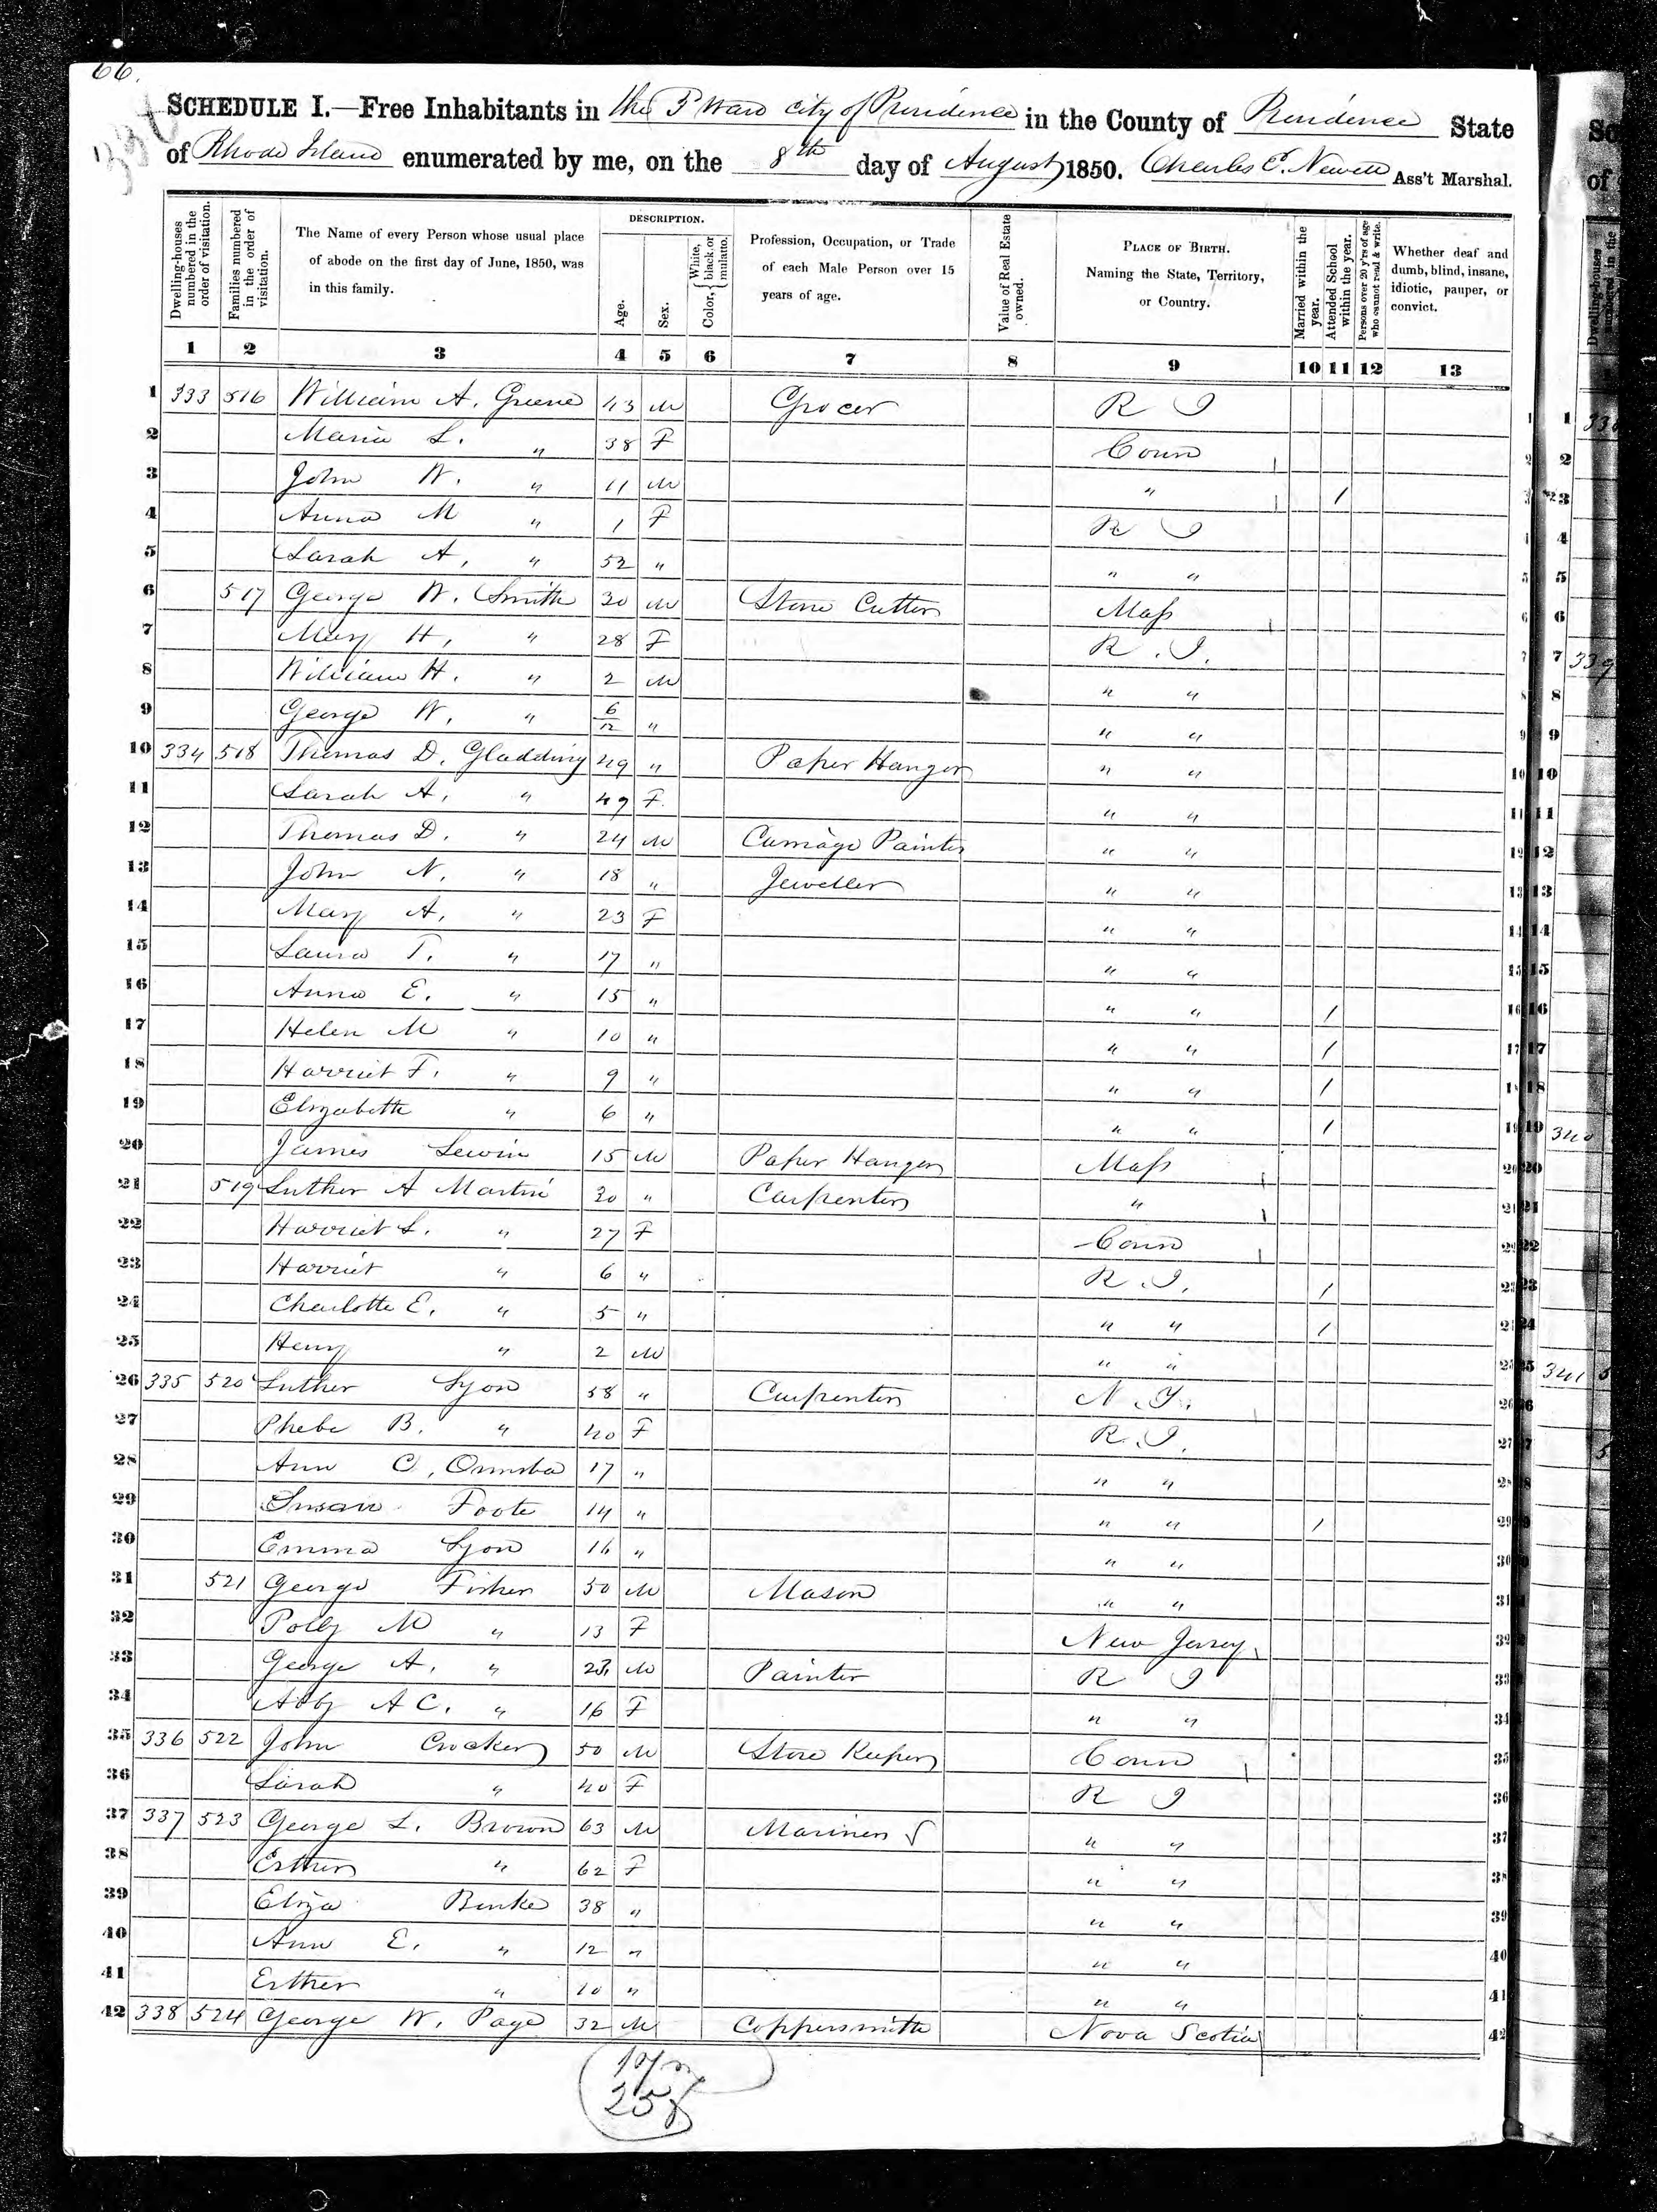 66.
SCHEDULE I.—Free Inhabitants in the 5 Ward City of Providence in the County of Providence State
of Rhode Island enumerated by me, on the 8th day of August 1850. Charles E. Newell Ass't Marshal.
Dwelling-houses numbered in the order of visitation.
Families numbered in the order of visitation.
The Name of every Person whose usual place of abode on the first day of June, 1850, was in this family.
DESCRIPTION.
Age.
Sex.
Color, { White, black, or mulatto.
Profession, Occupation, or Trade of each Male Person over 15 years of age.
Value of Real Estate owned.
PLACE OF BIRTH. Naming the State, Territory, or Country.
Married within the year.
Attended School within the year.
Persons over 20 y'rs of age who cannot read & write.
Whether deaf and dumb, blind, insane, idiotic, pauper, or convict.
1 2 3 4 5 6 7 8 9 10 11 12 13
1 333 516 William A. Greene 43 M Grocer R I 1
2 Maria L. " 38 F Conn 2
3 John W. " 11 M " 1 3
4 Anna M " 1 F R I 4
5 Sarah A, " 52 " " " 5
6 517 George W. Smith 30 M Stone Cutter Mass 6
7 Mary H, " 28 F R. I. 7
8 William H. " 2 M " " 8
9 George W, " 6/12 " " " 9
10 334 518 Thomas D. Gladding 49 " Paper Hanger " " 10
11 Sarah A, " 49 F. " " 11
12 Thomas D. " 24 M Carriage Painter " " 12
13 John N. " 18 " Jeweller " " 13
14 Mary A, " 23 F " " 14
15 Laura T. " 17 " " " 15
16 Anna E. " 15 " " " 1 16
17 Helen M " 10 " " " 1 17
18 Harriet F. " 9 " " " 1 18
19 Elizabeth " 6 " " " 1 19
20 James Lewin 15 M Paper Hanger Mass 20
21 519 Luther A Martin 30 " Carpenter " 21
22 Harriet L. " 27 F Conn 22
23 Harriet " 6 " R. I. 1 23
24 Charlotte E. " 5 " " " 1 24
25 Henry " 2 M " " 25
26 335 520 Luther Lyon 58 " Carpenter N. Y. 26
27 Phebe B. " 40 F R. I. 27
28 Ann C, 17 " " " 28
29 Susan Foote 14 " " " 1 29
30 Emma Lyon 16 " " " 30
31 521 George Fisher 50 M Mason " " 31
32 Polly M " 13 F New Jersey 32
33 George A. " 23 M Painter R I 33
34 Abby A C. " 16 F " " 34
35 336 522 John Crocker 50 M Store Keeper Conn 35
36 Sarah " 40 F R I 36
37 337 523 George L. Brown 63 M Mariner " " 37
38 Esther " 62 F " " 38
39 Eliza 38 " " " 39
40 Ann E. " 12 " " " 40
41 Esther " 10 " " " 41
42 338 524 George W. Page 32 M Coppersmith Nova Scotia 42